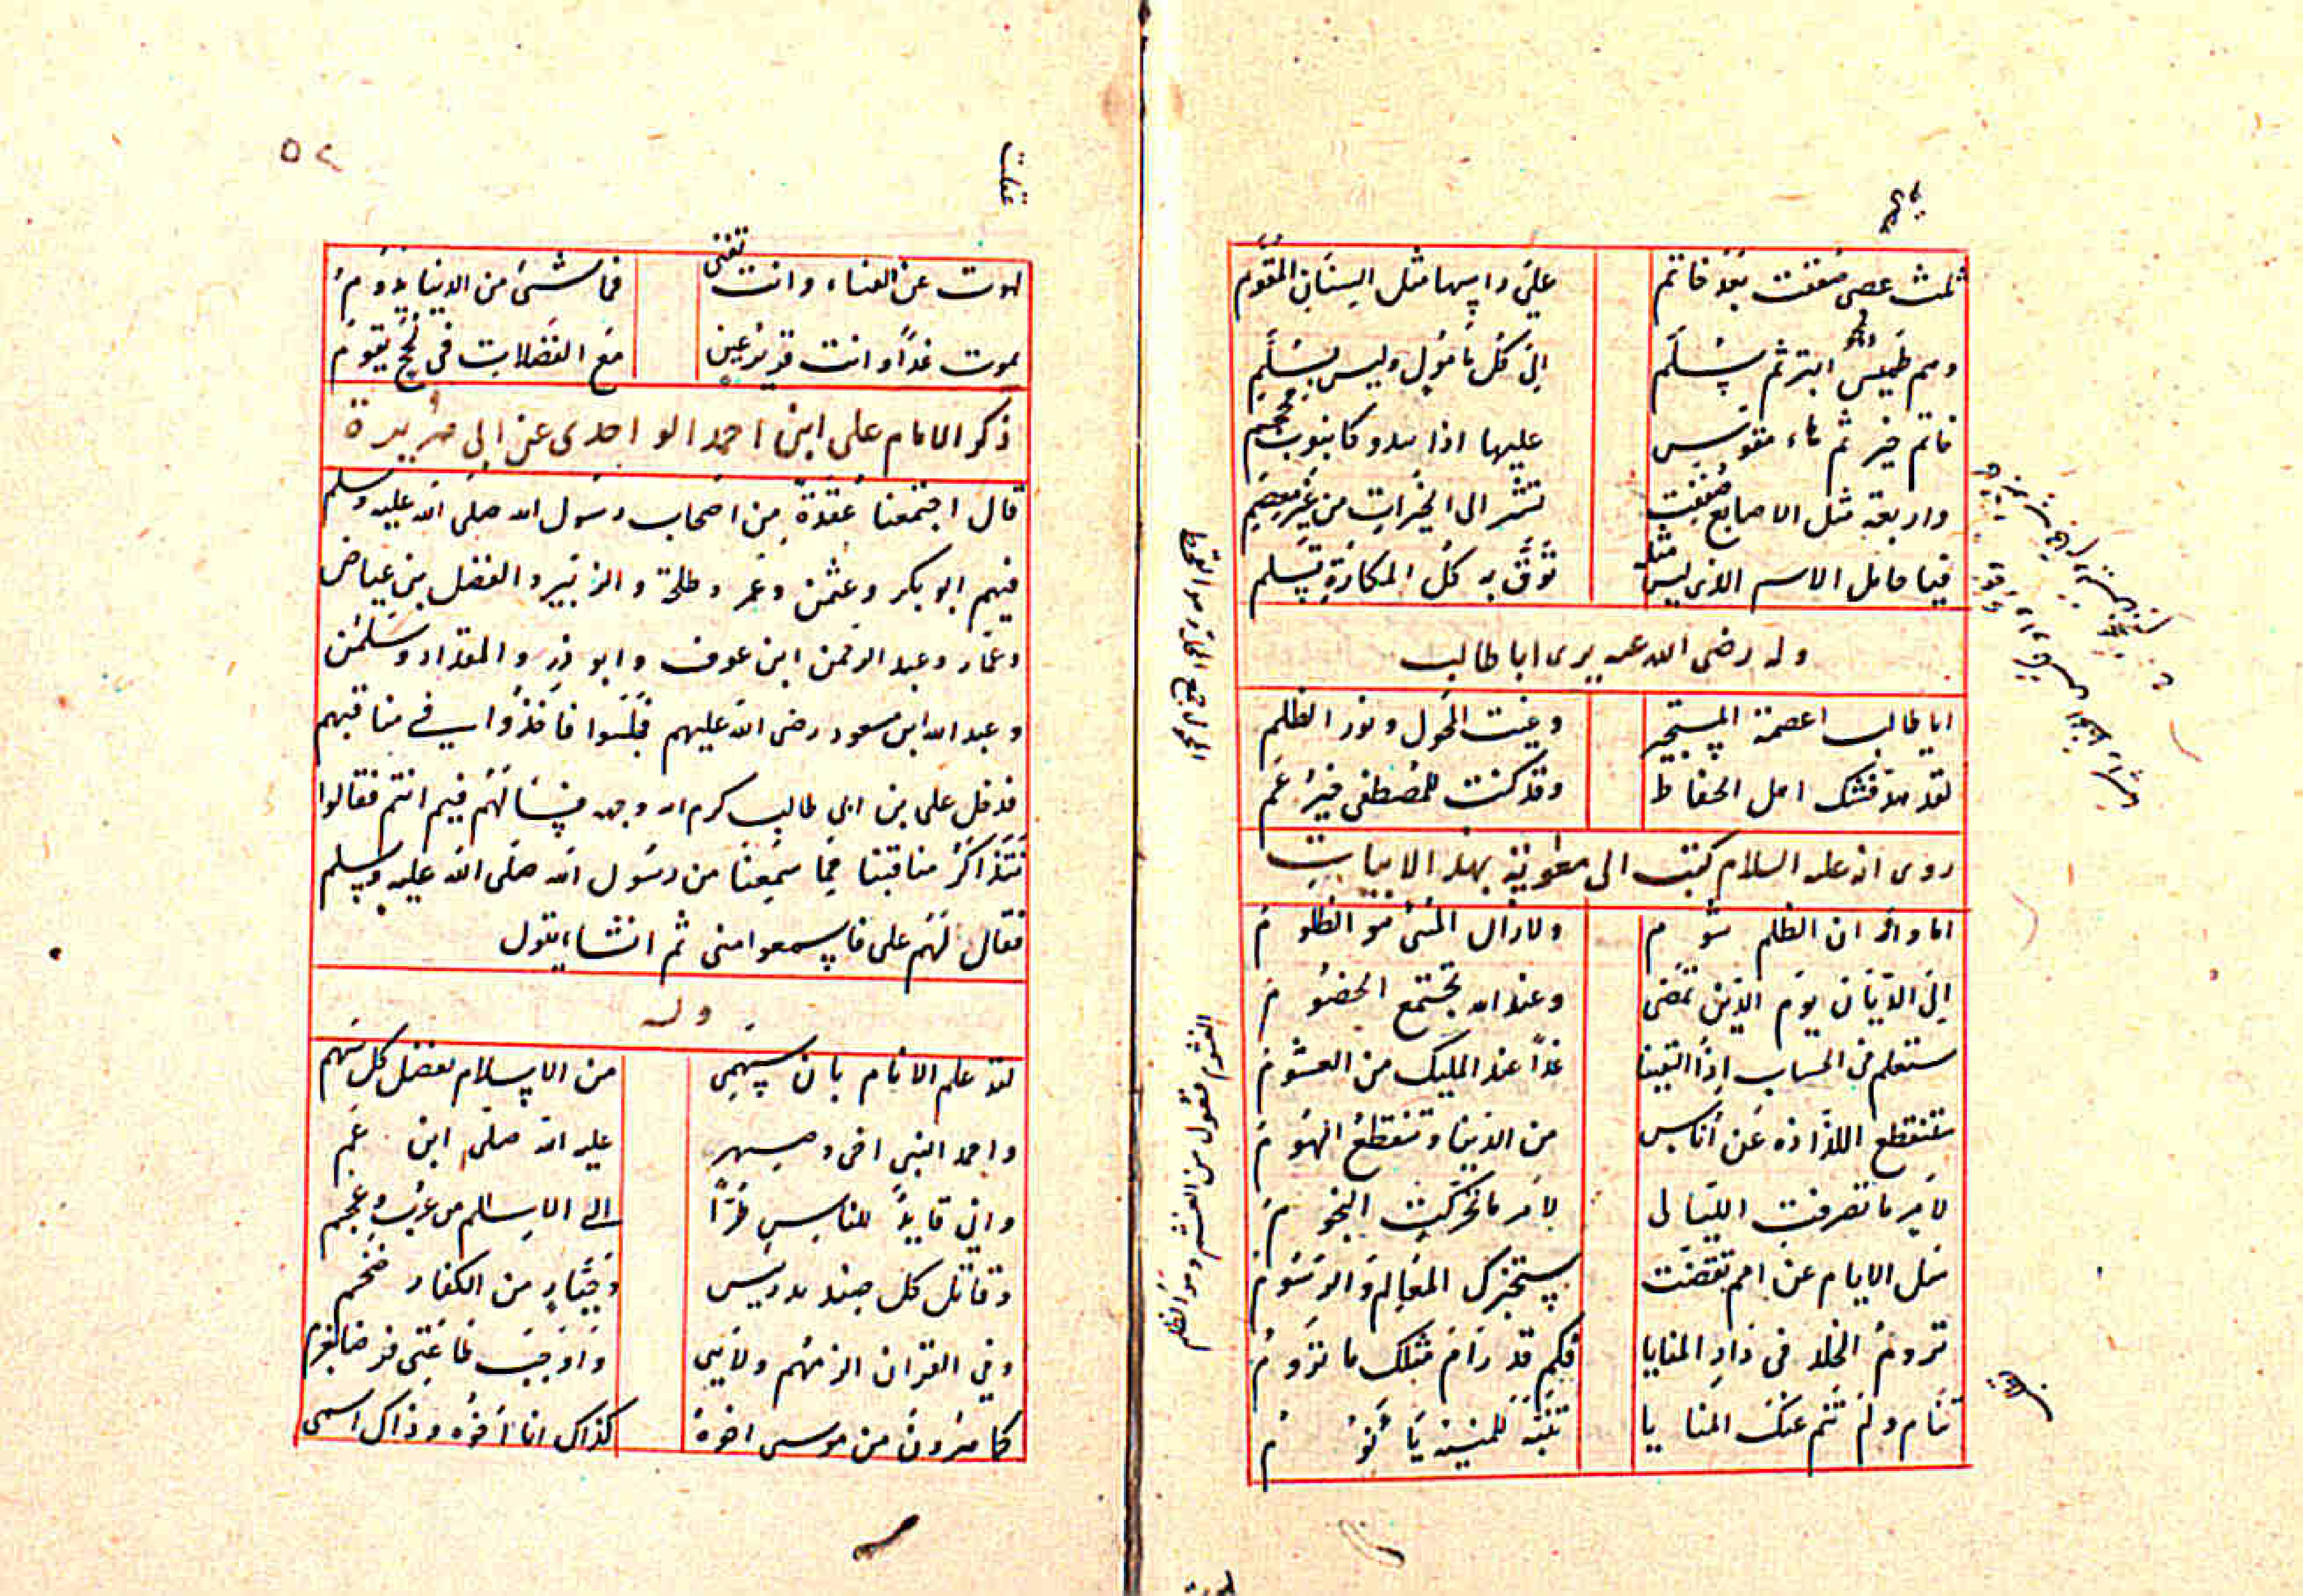 ثلث عصى صففت بعد خاتم على راسها مثل السنان المقوم
وميم طميس ابتر ثم سلم الى كل مامول وليس بسلم
خاتم خير ثم هاء مقوس عليها اذا يبدو كانبوب محجم
واربعة مثل الاصابع صففت تشر الى الخيرات من غير معصم
فيا حامل الاسم الذى ليس مثله توق به كل المكارة تسلم
وله رضى الله عنه يرى ابا طالب
ابا طالب عصمة المستجير وغيث المحول ونور الظلم
لقد هد فقدك اهل الحفاظ وقد كنت للمصطفى خير عم
روى انه عليه السلام كتب الى معوية بهذه الابيات
اما والله ان الظلم شوم ولا زال المسئ هو الظلوم
الى الديان يوم الدين نمضى وعند الله تجتمع الخصوم
ستعلم فى الحساب اذا التقينا غدا عند المليك من الغشوم
ستنقطع اللذاذه عن اناس من الدنيا وتنقطع الهموم
لامر ما تصرفت الليالى لامر ما تحركت النجوم
سل الايام عن امم تقضت ستخبرك المعالم والرسوم
تروم الخلد فى دار المنايا فكم قد رام مثلك ما تروم
تنام ولم تنم عنك المنايا تنبه للمنية يا نوم
الغشوم فعول من الغشم وهو الظلم
٥٢
لهوت عن الفناء وانت تفنى فما شئ من الدنيا يدوم
تموت غدا وانت قرير عين مع الفضلات فى لجج يقوم
ذكر الامام على ابن احمد الواحدى عن ابى هريرة
قال اجتمعنا عقدة من اصحاب رسول الله صلى الله عليه وسلم
فيهم ابو بكر وعثمن وعمر وطلحة والزبير والفضل بن عياض
وعمار وعبد الرحمن ابن عوف وابو ذر والمقداد وسلمن
وعبد الله ابن مسعود رضى الله عليهم فجلسوا فاخذوا فى مناقبهم
فدخل على بن ابى طالب كرم الله وجهه فسالهم فيم انتم فقالوا
نتذاكر مناقبنا مما سمعنا من رسول الله صلى الله عليه وسلم
فقال لهم على فاسمعوا منى ثم انشاء يقول
وله
لقد علم الانام بان سهمى من الاسلام يفضل كل سهم
واحمد النبى اخى وصهرى عليه الله صلى ابن عم
وانى قايد للناس طرا الى الاسلم من عرب وعجم
وقاتل كل صنديد رييس وجبار من الكفار ضخم
وفى القران الزمهم ولايى واوجب طاعتى فرضا بعزم
كما هرون من موسى اخوه كذاك انا اخوه وذاك اسمى